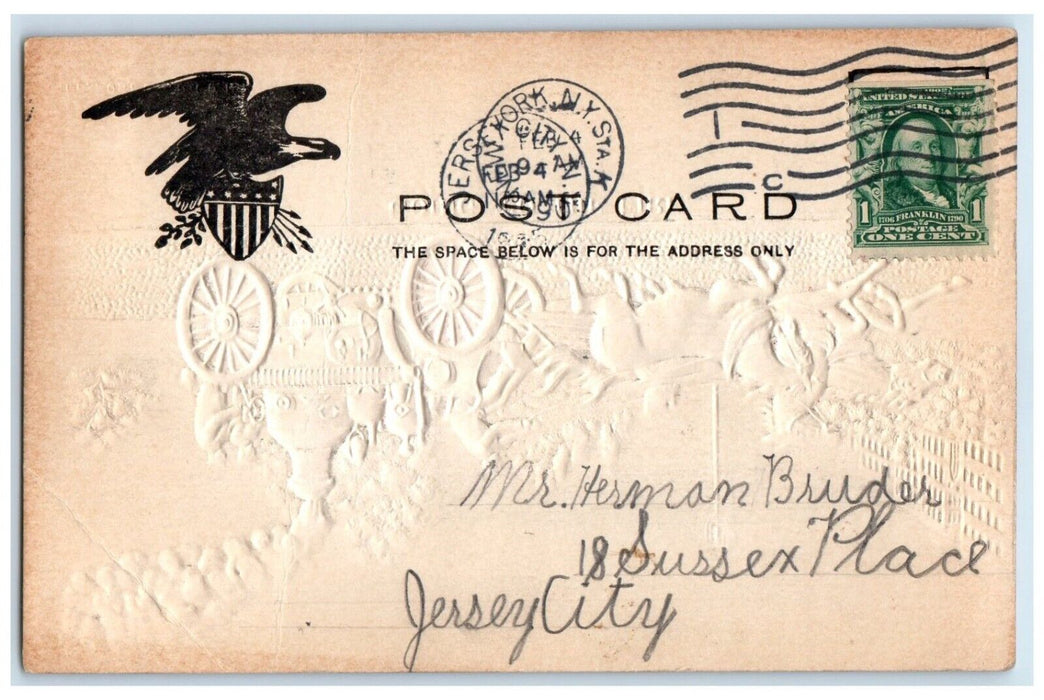 NEW YORK, N.Y. STA. K
FEB 4
JERSEY CITY N.J.
FEB
9 AM
1
UNITED STATES OF AMERICA
1706 FRANKLIN 1790
1
POSTAGE
ONE CENT
POST CARD
THE SPACE BELOW IS FOR THE ADDRESS ONLY
Mr. Herman Bruder
18 Sussex Place
Jersey City